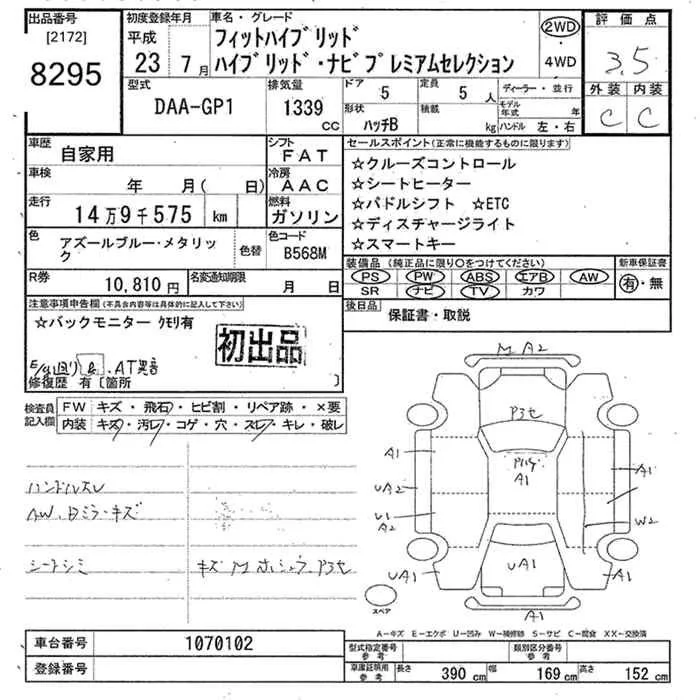 出品番号
[2172]
8295
初度登録年月
平成
23 7月
車名・グレード
フィットハイブリッド
ハイブリッド・ナビプレミアムセレクション
2WD
・
4WD
評価点
3.5
外装 内装
C C
型式
DAA-GP1
排気量
1339
cc
ドア
5
定員
5 人
形状
ハッチB
積載
kg
ディーラー・並行
モデル年式 年
ハンドル 左・右
車歴
自家用
シフト
FAT
車検
年 月( 日)
冷房
AAC
走行
14万9千575 km
燃料
ガソリン
色
アズールブルー・メタリック
色替
色コード
B568M
R券
10,810円
名変通知期限
月 日
セールスポイント(正常に機能するものに限ります)
☆クルーズコントロール
☆シートヒーター
☆パドルシフト ☆ETC
☆ディスチャージライト
☆スマートキー
装備品(純正品に限り○をつけてください)
PS PW ABS エアB AW
SR ナビ TV カワ
新車保証書
有・無
後日品
保証書・取説
注意事項申告欄(不具合内容等は具体的に記入して下さい)
☆バックモニター クモリ有
初出品
修復歴 有〔箇所 〕
検査員記入欄
FW キズ・飛石・ヒビ割・リペア跡・×要
内装 キズ・汚レ・コゲ・穴・スレ・キレ・破レ
ハンドルスレ
AW、日ミラーキズ
シートシミ
キズ M ホシュウ P3セ
M A2
P3セ
A1
A1
UA2
U1
A2
A1
W2
UA1
UA1
A1
A1
スペア
A―キズ E―エクボ U―凹み W―補修跡 S―サビ C―腐食 XX―交換済
車台番号
1070102
登録番号
型式指定番号
参考
類別区分番号
参考
車庫証明用
参考
長さ 390 cm
幅 169 cm
高さ 152 cm